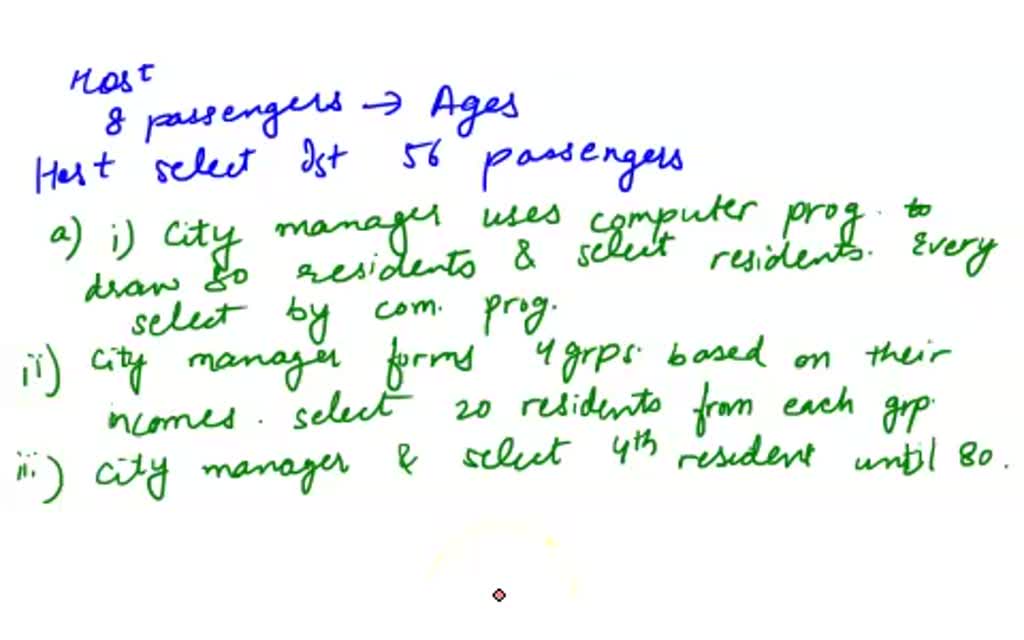 Host
8 passengers → Ages
Host select 1st 56 passengers
a) i) City manager uses computer prog. to
draw 80 residents & select residents. Every
select by com. prog.
ii) City manager forms 4 grps. based on their
incomes. select 20 residents from each grp.
iii) City manager & select 4th resident until 80.